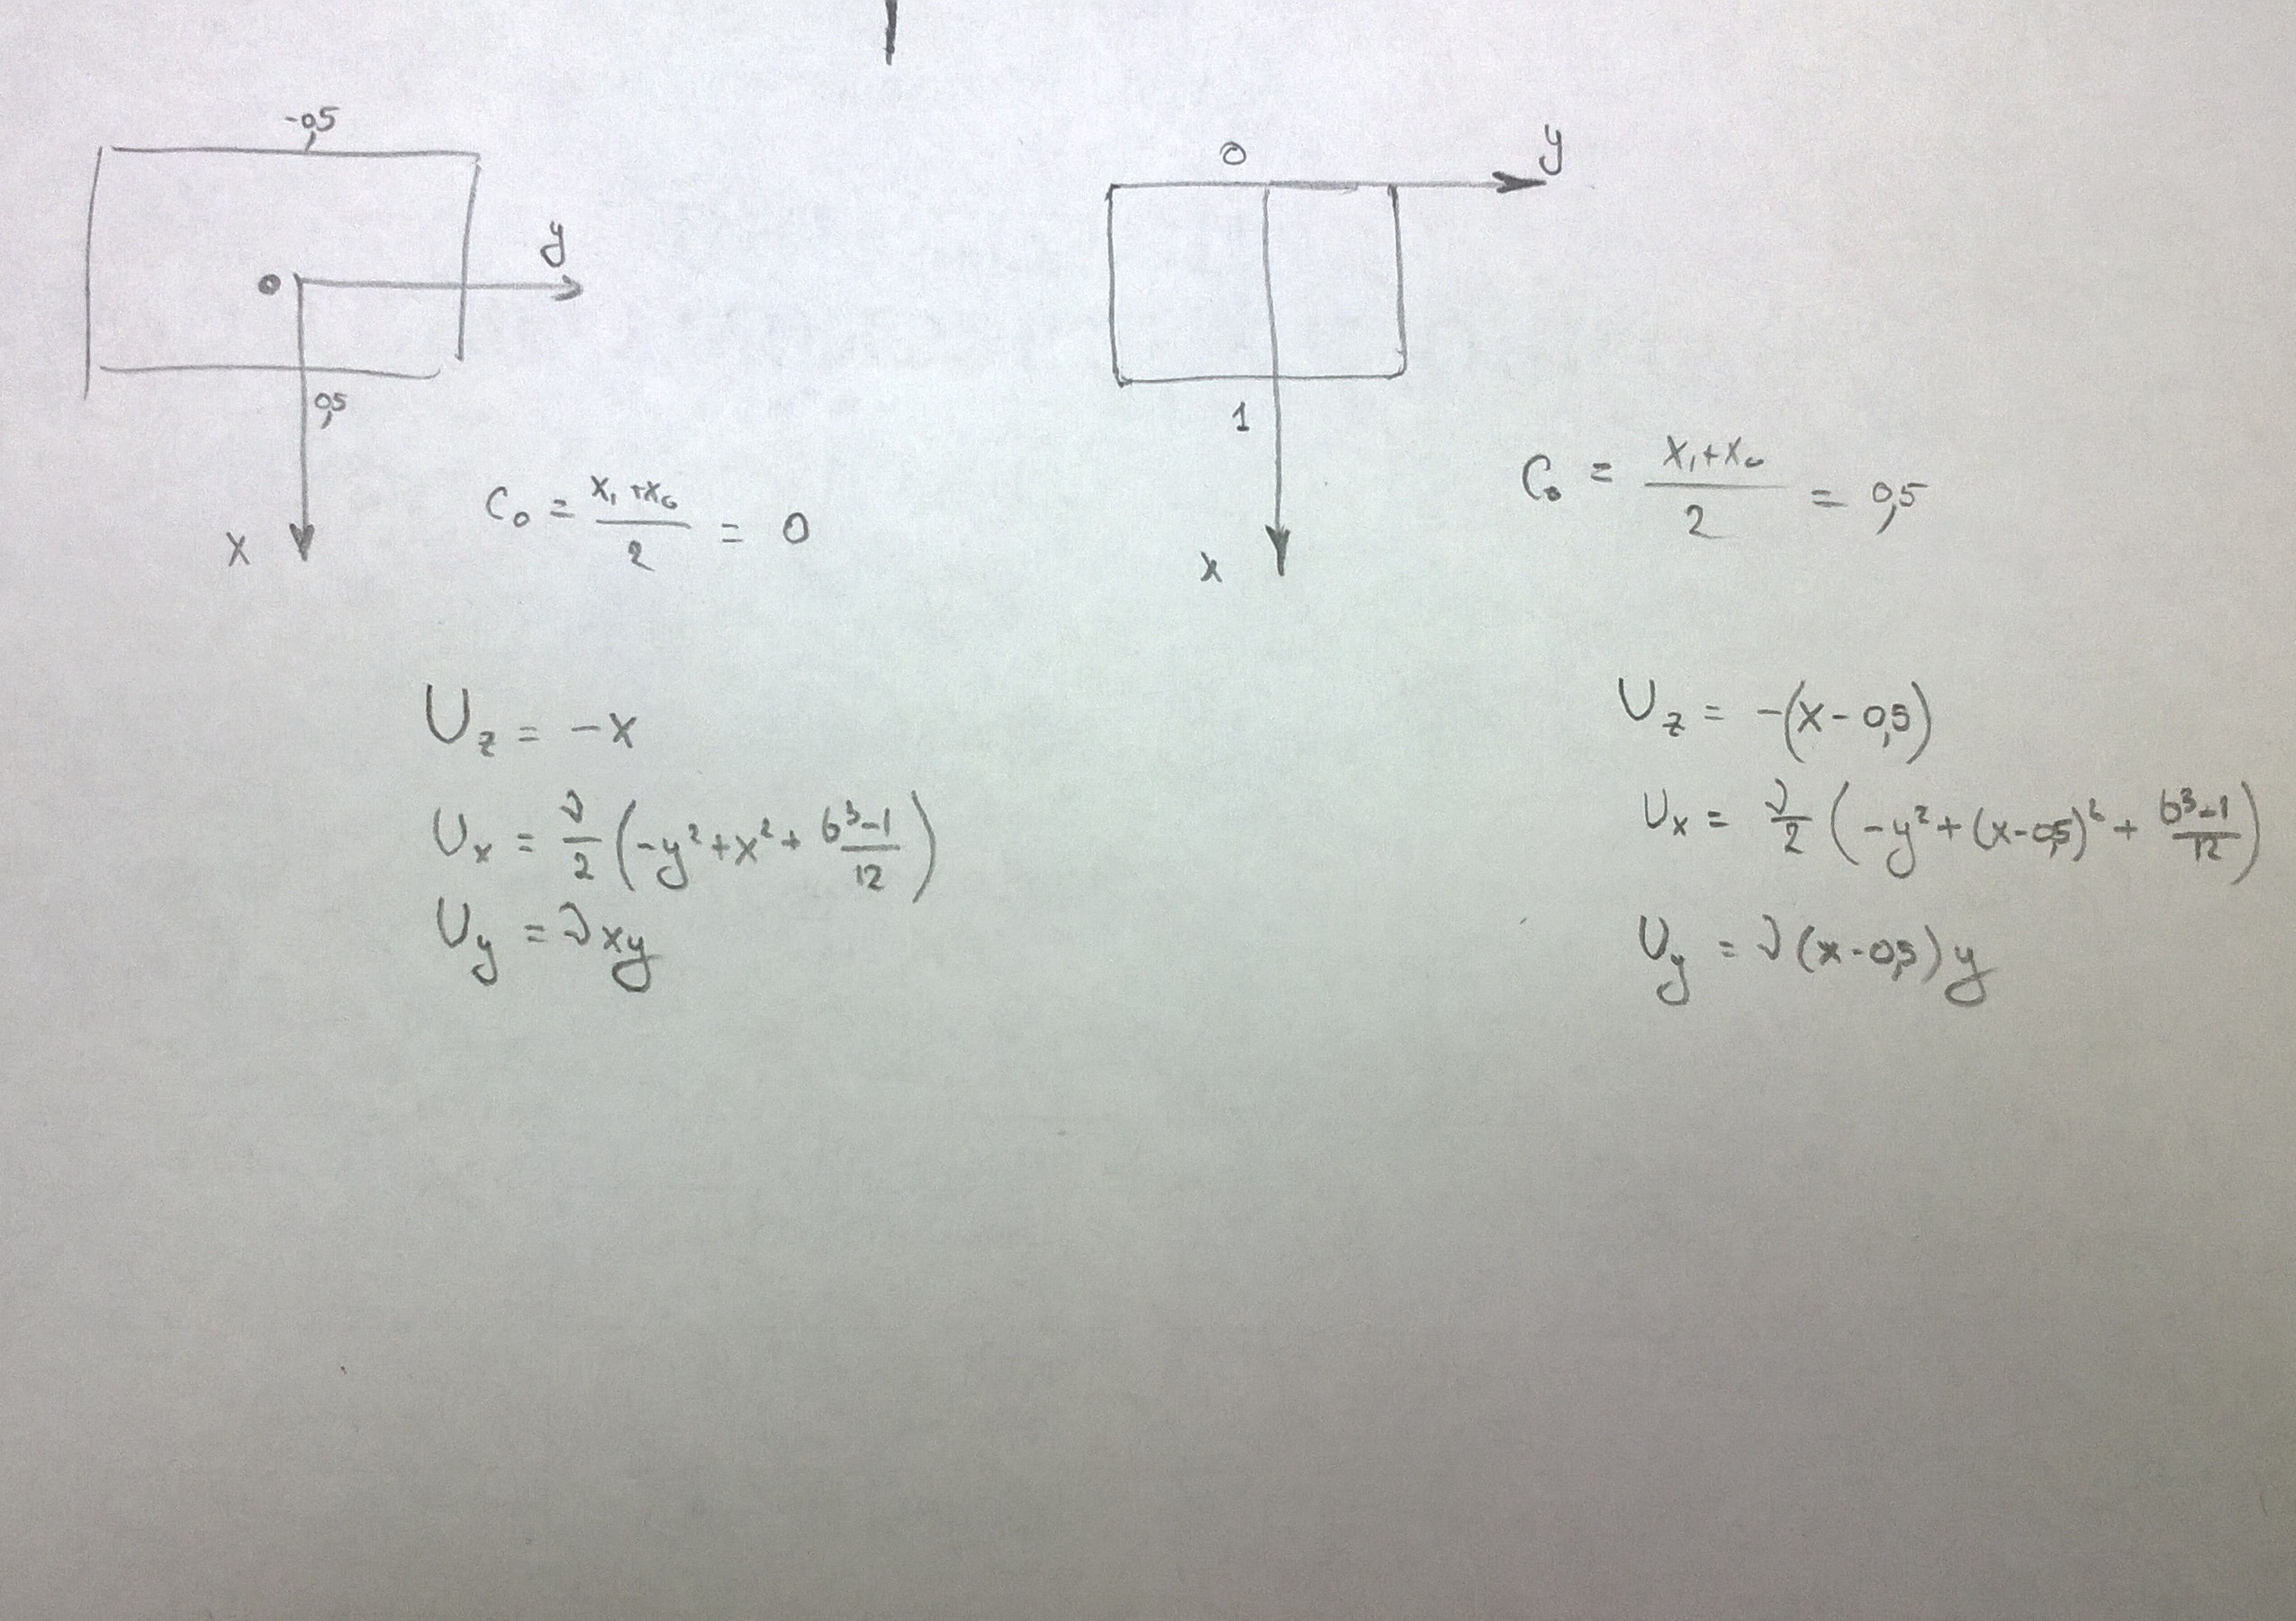 -0,5
0
y
0,5
x
C₀ = (x₁ + x₀)/2 = 0
U_z = -x
U_x = ν/2 (-y² + x² + (b³-1)/12)
U_y = νxy
0
y
1
x
C₀ = (x₁ + x₀)/2 = 0,5
U_z = -(x - 0,5)
U_x = ν/2 (-y² + (x-0,5)² + (b³-1)/12)
U_y = ν(x-0,5)y